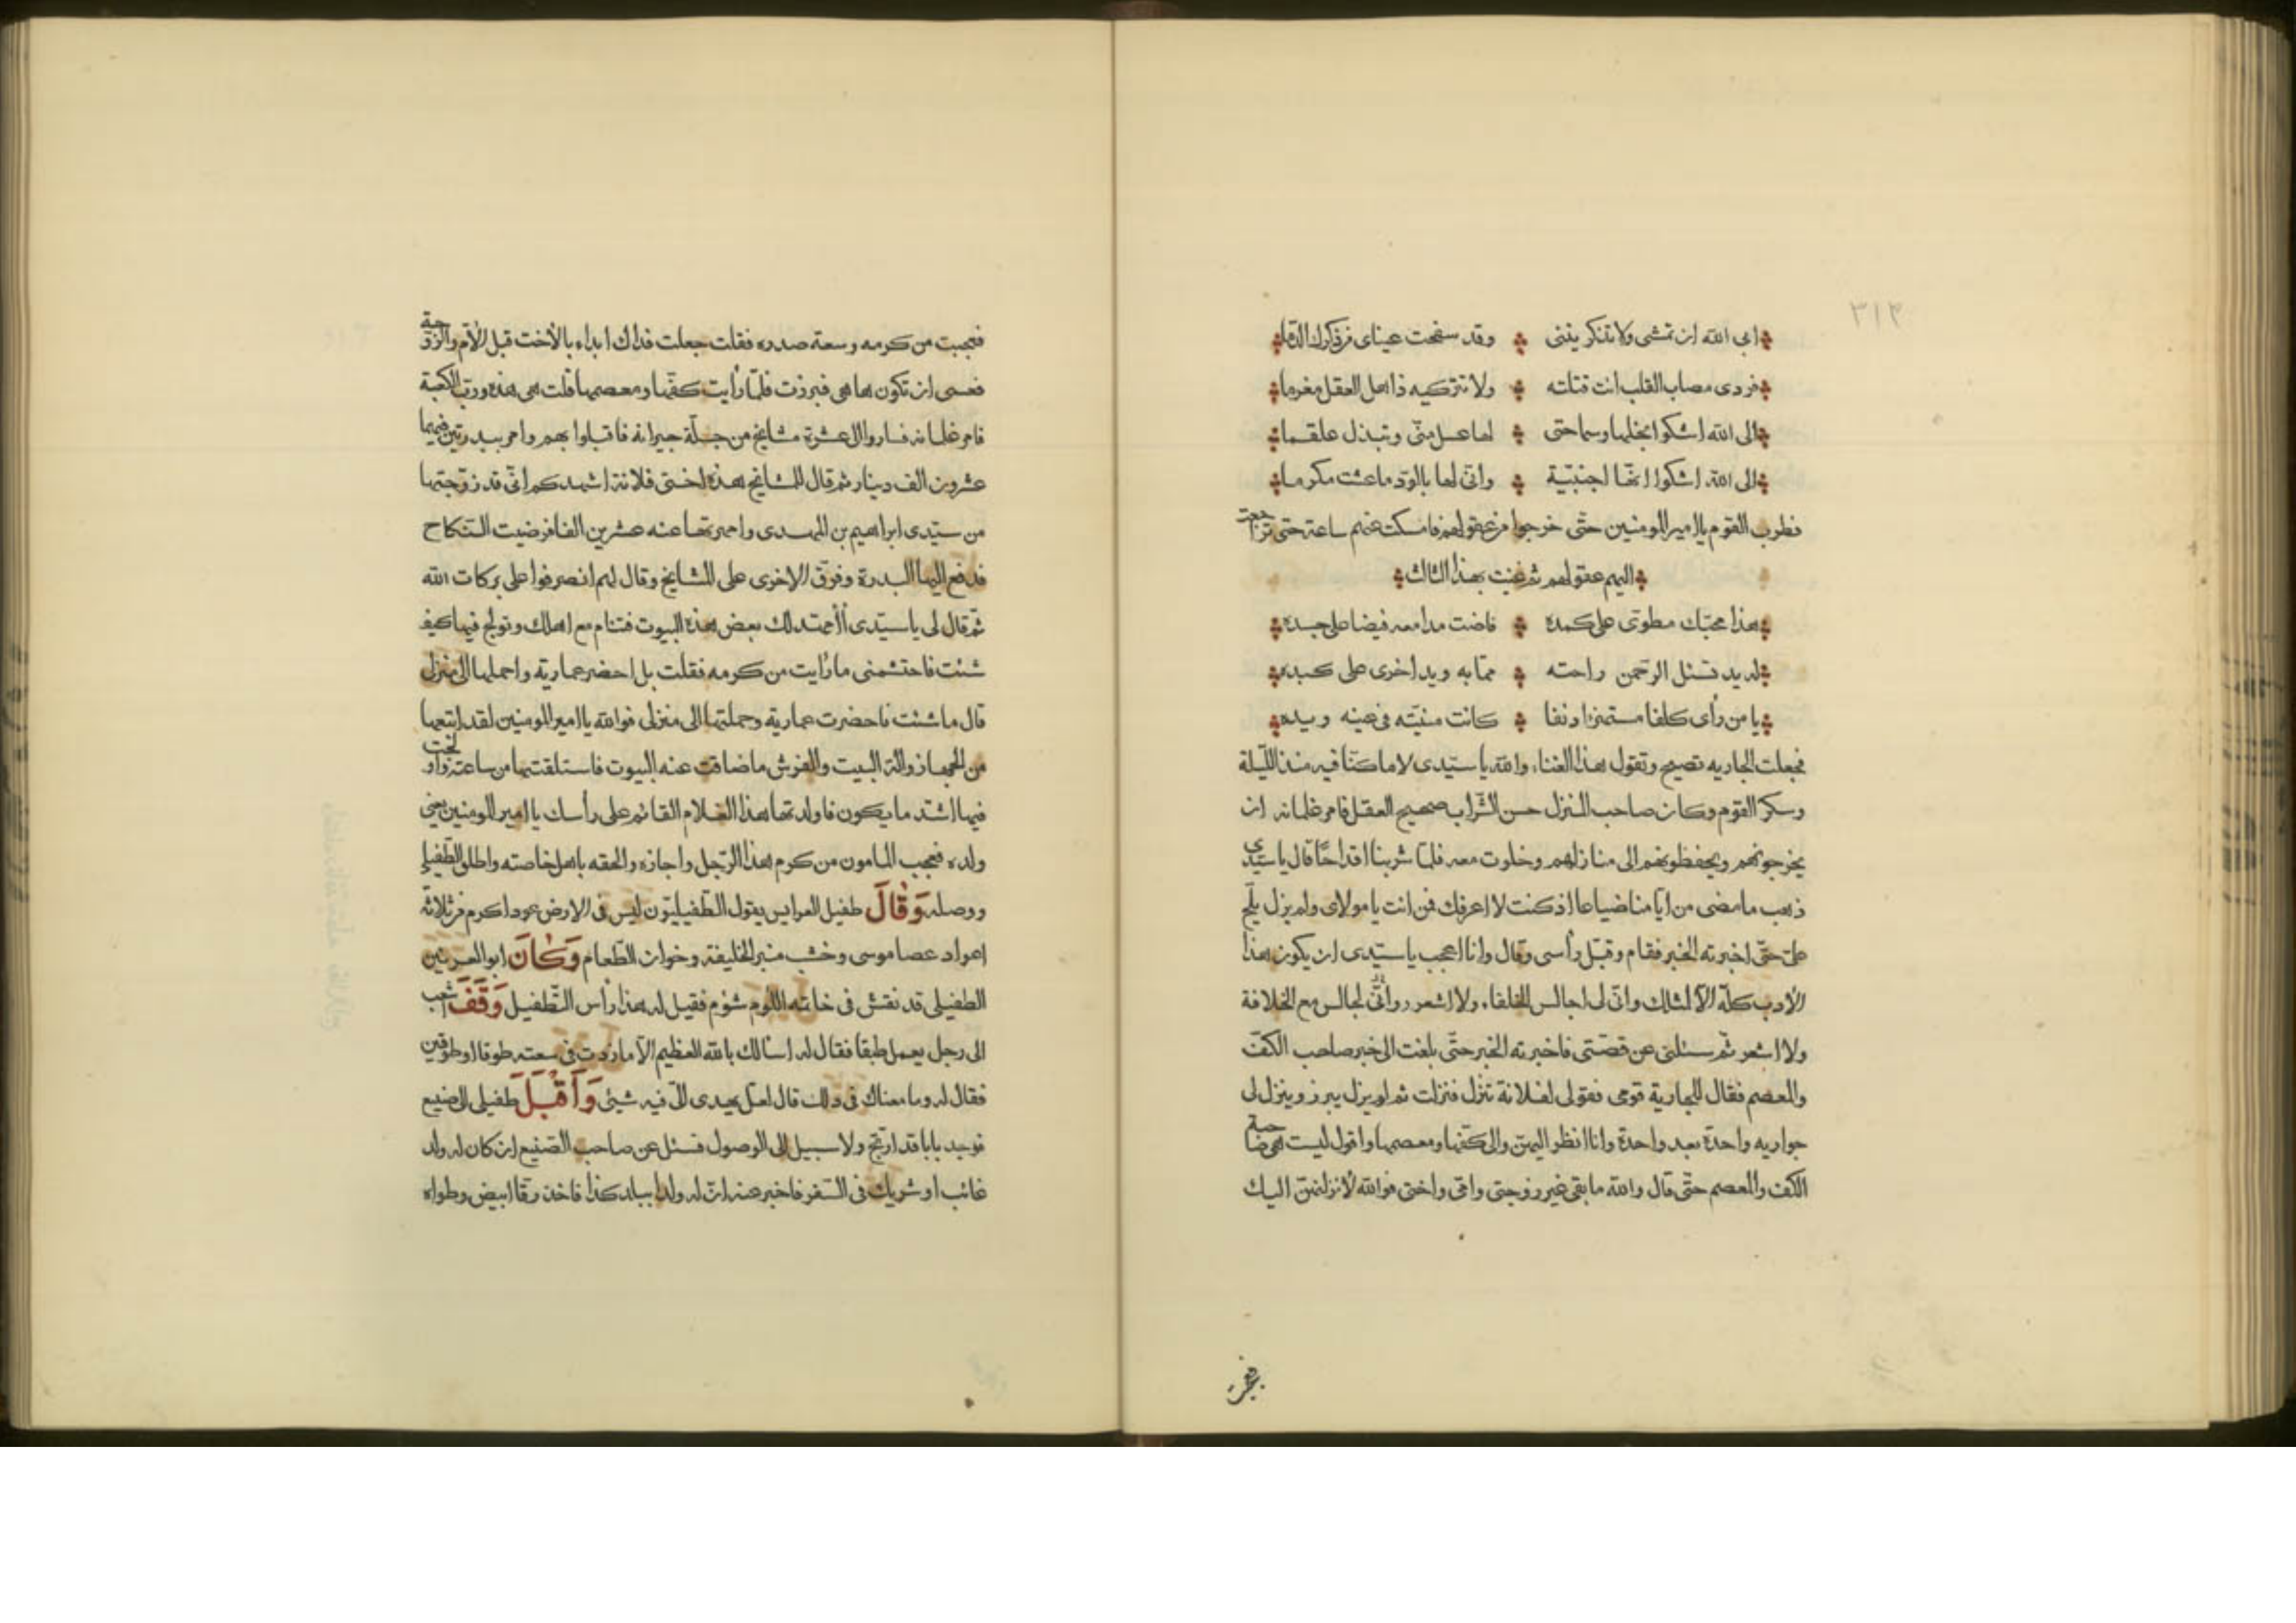 ٣١٢
ابى الله ان تمشى ولا تذكريننى وقد سفحت عيناى من ذكراك الدما
فردى مصاب القلب انت قتلته ولا تتركيه ذاهل العقل مغرما
الى الله اشكوا بخلها وسماحتى لها عسل منّى وتبذل علقما
الى الله اشكوا انها اجنبيّة وانى لها بالودّ ما عشت مكرما
فطرب القوم يا امير المومنين حتّى خرجوا من عقولهم فامسكت عنهم ساعة حتى تراجعت
اليهم عقولهم ثم غنيت بهذا الثالث
هذا محبّك مطوىّ على كمده فاضت مدامعه فيضا على جسده
له يد تسئل الرحمن راحته ممّا به ويد اخرى على كبده
يا من رأى كلفا مستهزا دنفا كانت منيّته فى عينه ويده
فجعلت الجاريه تصيح وتقول هذا الغناء والله يا سيّدى لا ما كنّا فيه منذ اللّيلة
وسكر القوم وكان صاحب المنزل حسن الشّراب صحيح العقل فامر غلمانه ان
يخرجونهم ويحفظونهم الى منازلهم وخلوت معه فلمّا شربنا اقداحًا قال يا سيّدى
ذهب ما مضى من ايّامنا ضياعا اذ كنت لا اعرفك فمن انت يا مولاى ولم يزل يلّح
علىّ حتّى اخبرته الخبر فقام وقبّل رأسى وقال وانا اعجب يا سيّدى ان يكون هذا
الأدب كلّه الّا لمثلك وانّى لى اجالس الخلفاء ولا اشعر وانّى لجالس مع الخلافة
ولا اشعر ثم سئلنى عن قصّتى فاخبرته الخبر حتّى بلغت الى خبر صاحب الكفّ
والمعصم فقال للجارية قومى فقولى لفلانة تنزل فنزلت ثم لم يزل يبرز وينزل لى
جواريه واحدة بعد واحدة وانا انظر اليهنّ والى كفّها ومعصمها واقول ليست هى صاحبة
الكفّ والمعصم حتّى قال والله ما بقى غير زوجتى وامّى واختى فوالله لأنزلنهنّ اليك
فعجبت من كرمه وسعة صدره فقلت جعلت فداك ابداء بالأخت قبل الأمّ والزوجة
فعسى ان تكون هاهى فبرزت فلمّا رأيت كفّها ومعصمها قلت هى هذه وربّ الكعبة
فامر غلمانه فساروا الى عشرة مشايخ من جملّة جيرانه فاقبلوا بهم وامر ببدرتين فيهما
عشرون الف دينار ثم قال للمشايخ هذه اختى فلانة اشهدكم انّى قد زوّجتها
من سيّدى ابراهيم بن المهدى وامهرتها عنه عشرين الفا فرضيت النّكاح
فدفع اليها البدرة وفرّق الاخرى على المشايخ وقال لهم انصرفوا على بركات الله
ثم قال لى يا سيّدى أأمهّد لك بعض هذه البيوت فتنام مع اهلك وتولج فيها كيف
شئت فاحتشمنى ما رأيت من كرمه فقلت بل احضر عماريّه واحملها الى منزلى
قال ما شئت فاحضرت عماريّه وحملتها الى منزلى فوالله يا امير المومنين لقد اتبعها
من الجهاز والة البيت والفرش ما ضاقت عنه البيوت فاستلقتها من ساعته
فيها اشدّ ما يكون فاولدتها هذا الغلام القائم على رأسك يا امير المومنين يعنى
ولده فعجب المامون من كرم هذا الرّجل واجازه والحقه باهل خاصته واطلق الطّفيلى
ووصله وَقَالَ طفيل العرايس يقول الطّفيليّون ليس فى الارض عودا كرم من ثلاثة
اعواد عصا موسى وخشب منبر الخليفة وخوان الطّعام وَكَانَ ابو العرنين
الطفيلى قد نقش فى خاتمه اللّوم شؤم فقيل له هذا رأس التّطفيل وَقَفَ اشعب
الى رجل يعمل طبقا فقال له اسألك بالله العظيم الّا ما زدت فى سعته طوقا او طوقين
فقال له وما معناك فى ذلك قال لعلّ يهدى الىّ فيه شيئ وَأَقْبَلَ طفيلى الى صنيع
فوجد بابا قد ارتج ولا سبيل الى الوصول فسئل عن صاحب الصّنيع ان كان له ولد
غائب او شريك فى السّفر فاخبر عنه انّ له ولدا ببلد كذا فاخذ رقّا ابيض وطواه